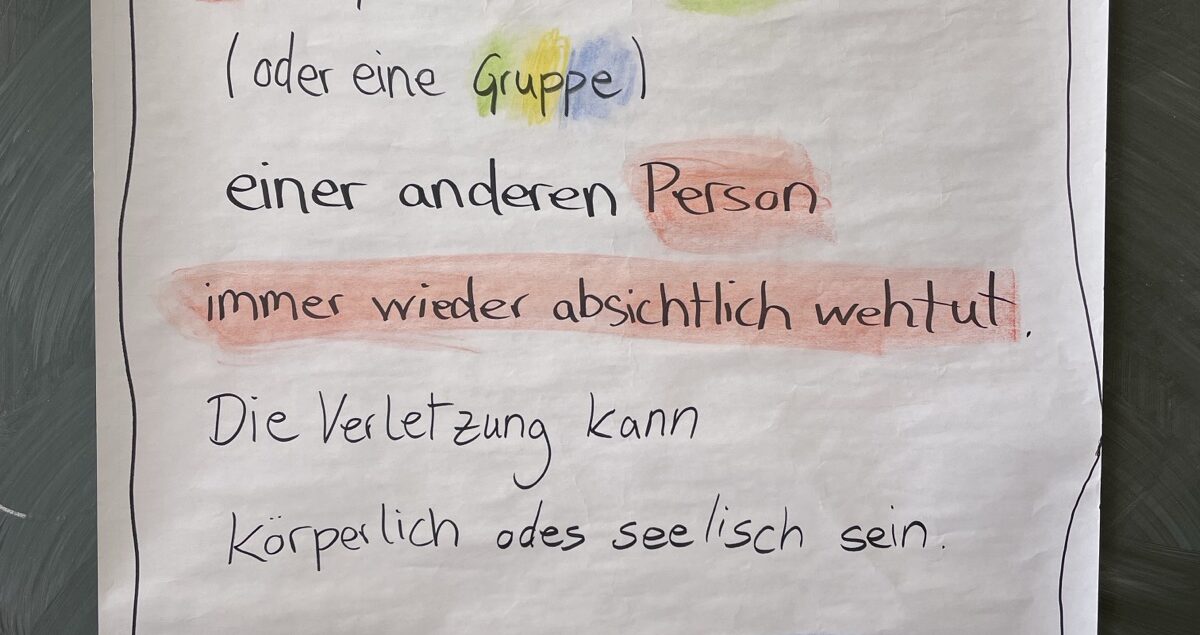 (oder eine Gruppe)
einer anderen Person
immer wieder absichtlich wehtut.
Die Verletzung kann
körperlich odes seelisch sein.